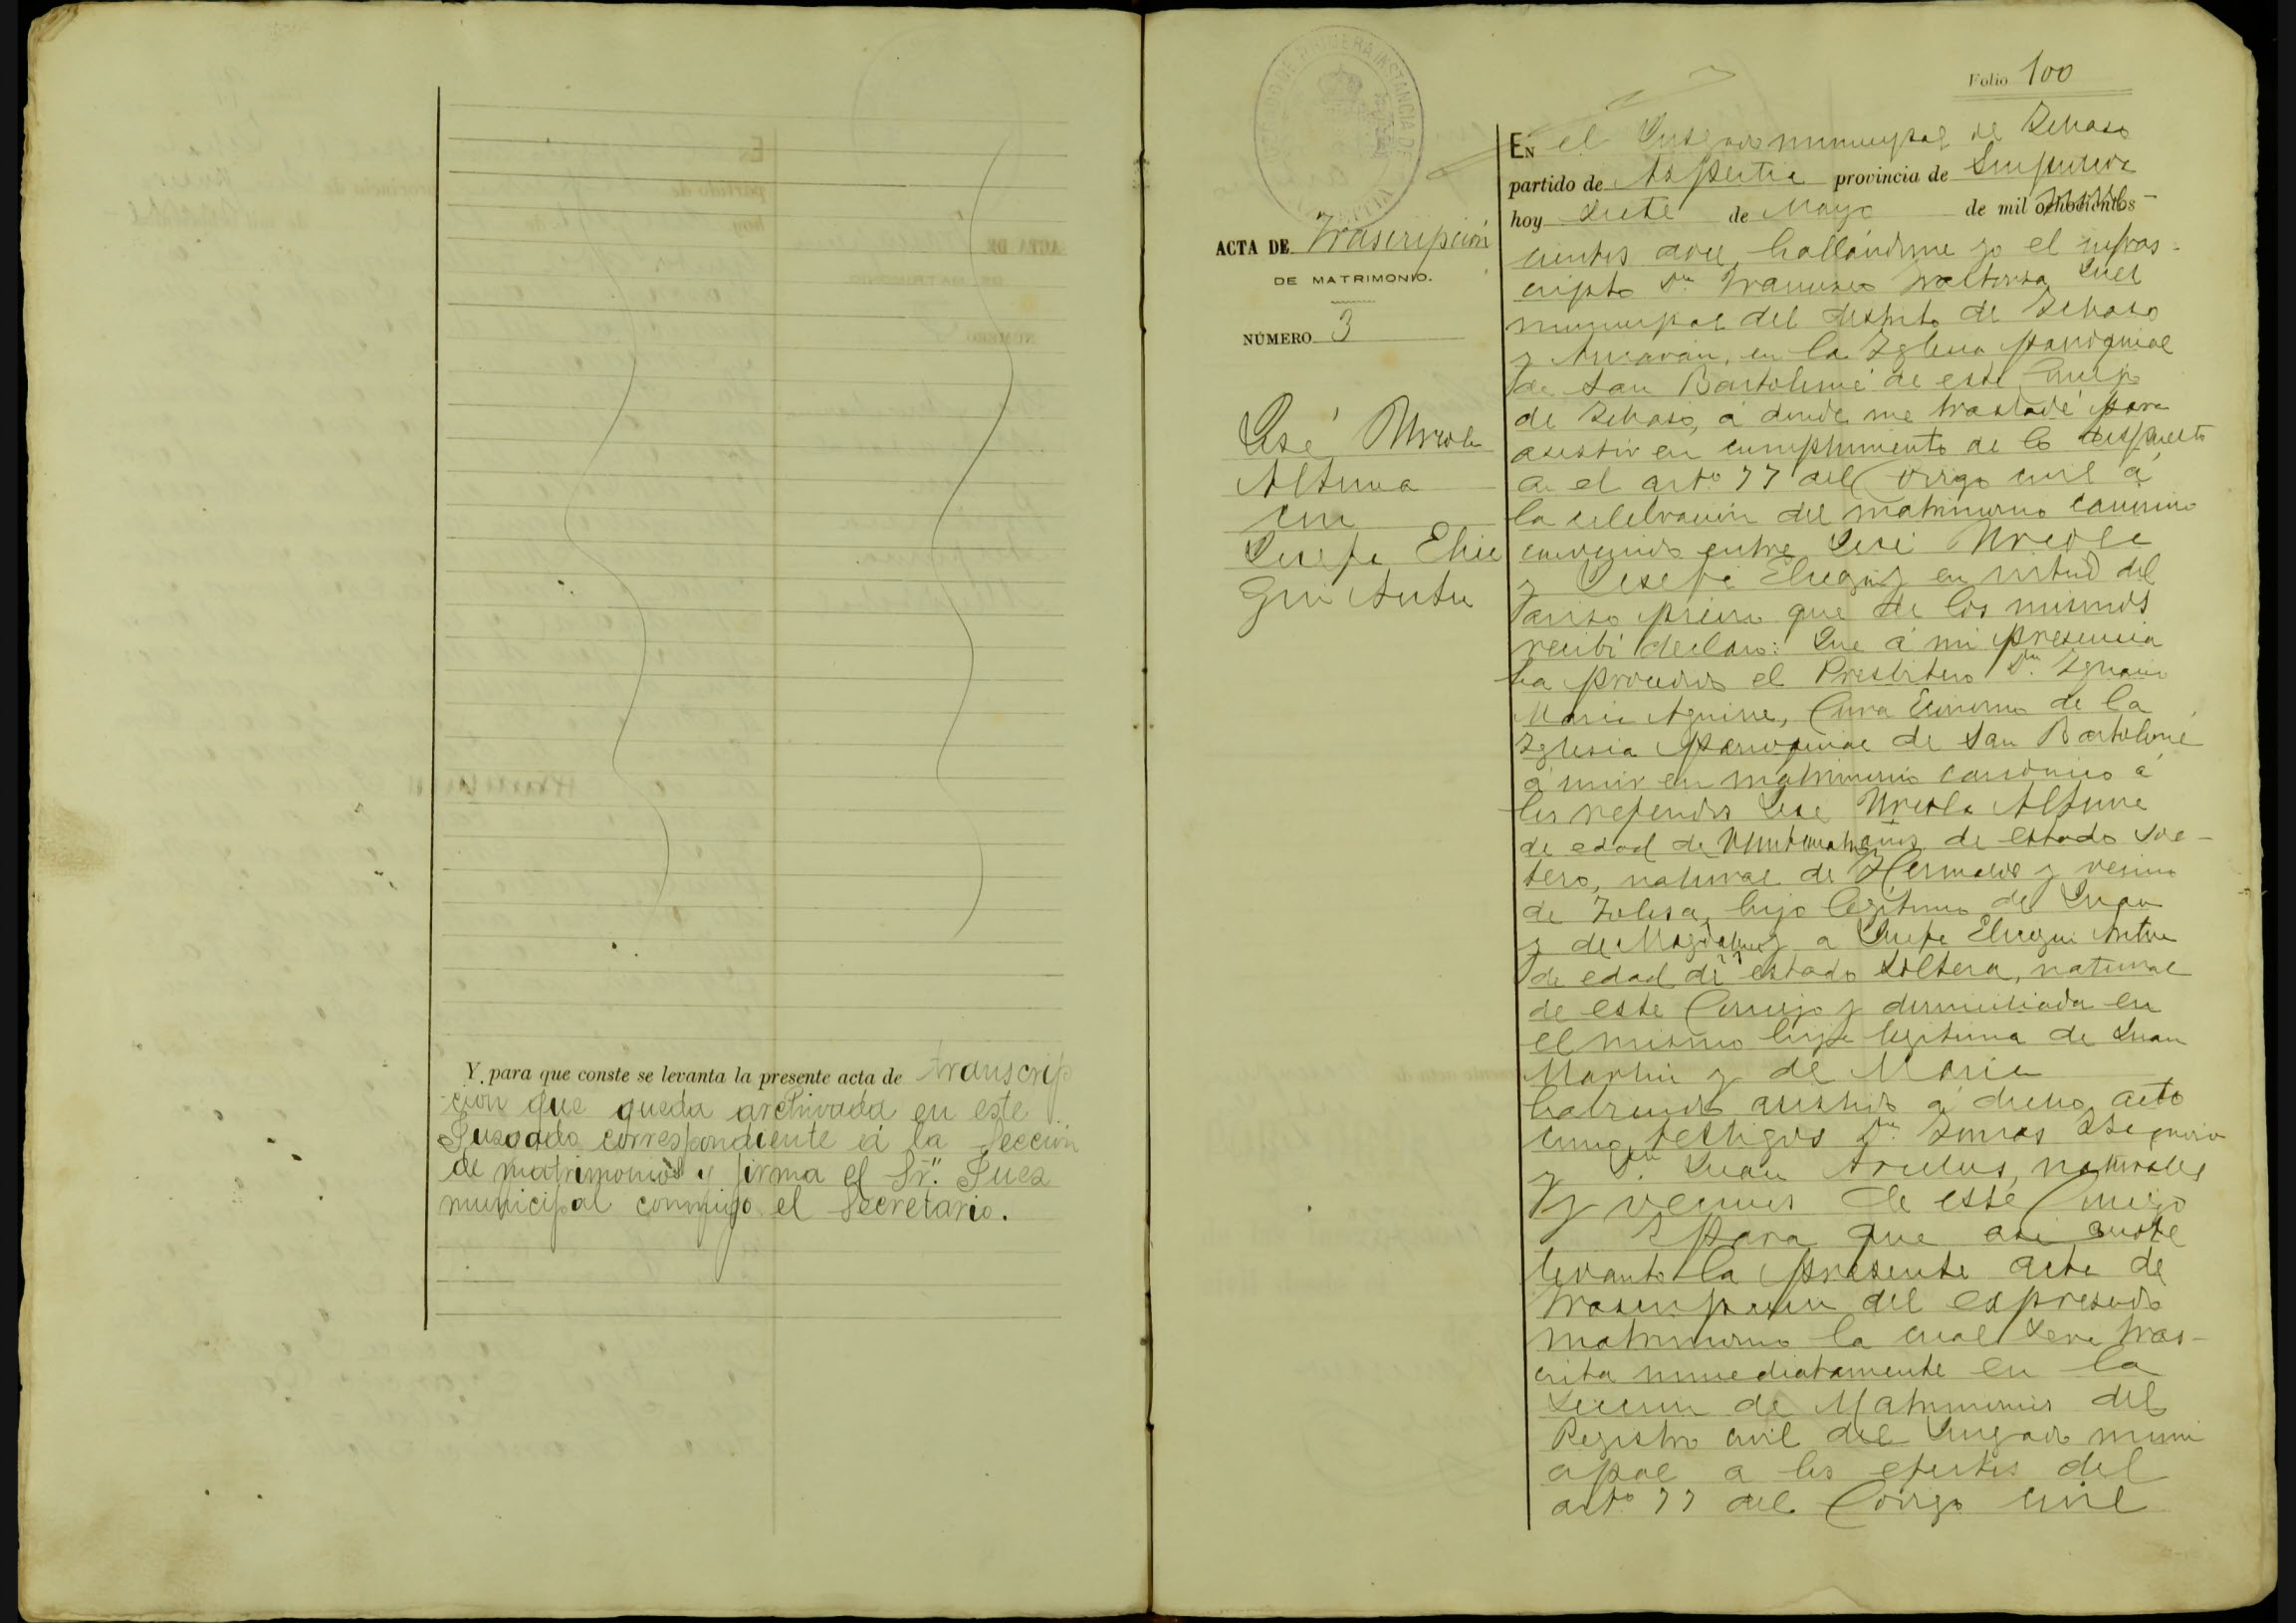 Y para que conste se levanta la presente acta de transcrip
cion que queda archivada en este
Juzgado correspondiente á la Sección
de matrimonios y firma el Sr. Juez
municipal conmigo el Secretario.
JUZGADO DE PRIMERA INSTANCIA DE AZPEITIA
Folio 100
ACTA DE Trascripción
DE MATRIMONIO.
NÚMERO 3
José Urcola
Altuna
con
Josefa Elice
gui Antu
EN el Juzgado municipal de
partido de Azpeitia provincia de Guipuzcoa
hoy siete de Mayo de mil ochocientos
cientos doce hallándome yo el infras-
cripto Dn Francisco Juez
municipal del distrito de
y en la Iglesia parroquial
de San Bartolomé de este Concejo
de á donde me trasladé para
asistir en cumplimiento de lo dispuesto
en el arto 77 del Codigo civil á
la celebración del matrimonio canonico
convenido entre José Urcola
y Josefa Elicegui y en virtud del
aviso previo que de los mismos
recibí declaro: Que á mi presencia
ha procedido el Presbitero Dn Ignacio
Maria Aguirre, Cura Economo de la
Iglesia parroquial de San Bartolomé
á unir en matrimonio canónico á
los referidos José Urcola Altuna
de edad de años de estado sol-
tero, natural de Hernialde y vecino
de Tolosa, hijo legítimo de Juan
y de Magdalena y a Josefa Elicegui Antu
de edad de estado soltera, natural
de este Concejo y domiciliada en
el mismo hija legitima de Juan
Martin y de Maria
habiendo asistido á dicho acto
como testigos Dn
y Dn Juan naturales
y vecinos de este Concejo
Y para que asi conste
levanto la presente acta de
trascripcion del expresado
matrimonio la cual sera tras-
crita inmediatamente en la
Seccion de Matrimonios del
Registro civil del Juzgado muni
cipal a los efectos del
arto 77 del Codigo civil